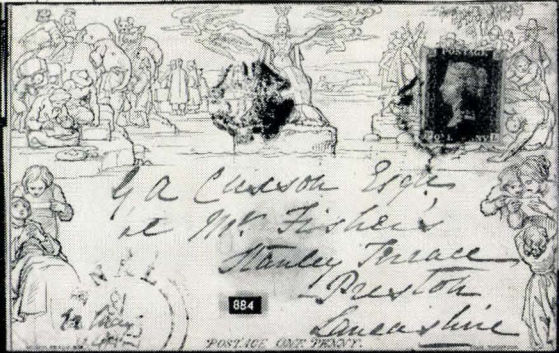 POSTAGE
G A Curson Esqr
at Mr. Fisher's
Stanley Terrace
Preston
Lancashire
884
POSTAGE ONE PENNY.